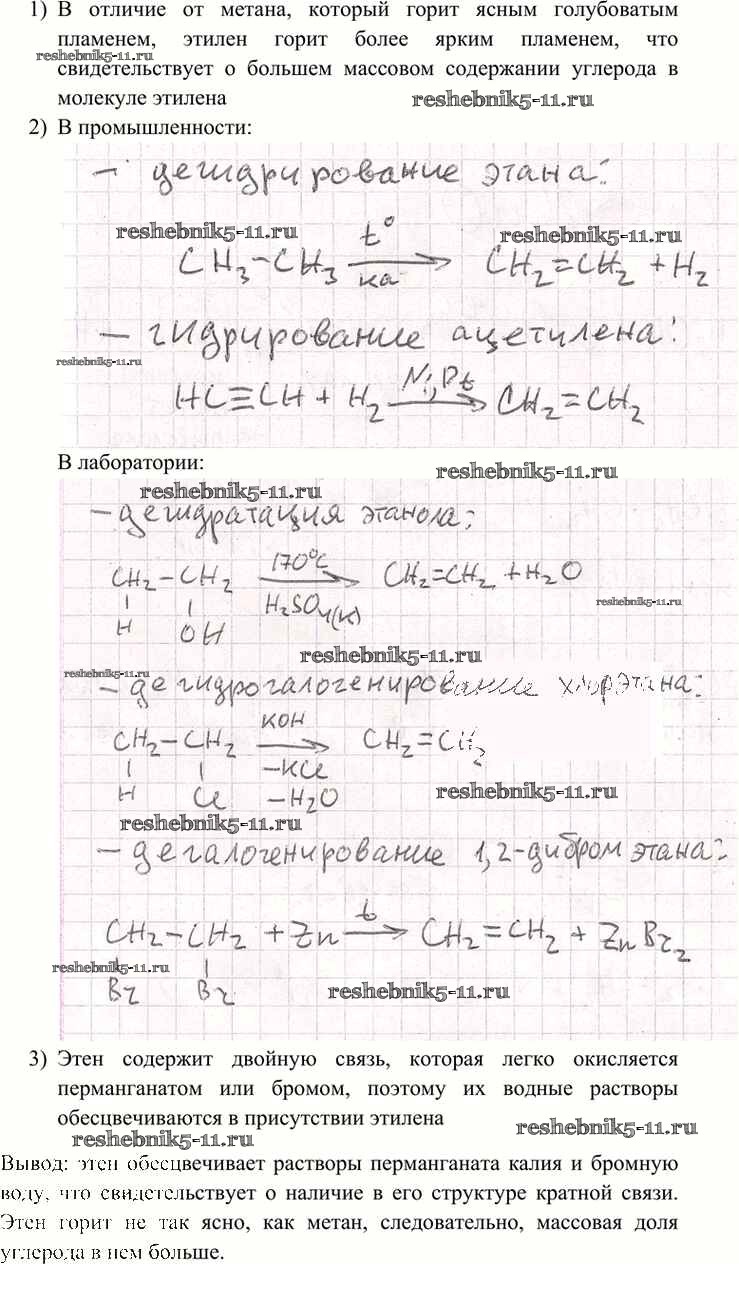 1) В отличие от метана, который горит ясным голубоватым
пламенем, этилен горит более ярким пламенем, что
reshebnik5-11.ru
свидетельствует о большем массовом содержании углерода в
молекуле этилена
reshebnik5-11.ru
2) В промышленности:
– дегидрирование этана:
reshebnik5-11.ru
reshebnik5-11.ru
CH₃–CH₃ —t°/ка→ CH₂=CH₂ + H₂
– гидрирование ацетилена:
reshebnik5-11.ru
HC≡CH + H₂ —Ni, Pt→ CH₂=CH₂
В лаборатории:
reshebnik5-11.ru
reshebnik5-11.ru
– дегидратация этанола:
CH₂–CH₂ —170°C/H₂SO₄(к)→ CH₂=CH₂ + H₂O
H OH
reshebnik5-11.ru
reshebnik5-11.ru
reshebnik5-11.ru
– дегидрогалогенирование хлорэтана:
CH₂–CH₂ —KOH/–KCl –H₂O→ CH₂=CH₂
H Cl
reshebnik5-11.ru
reshebnik5-11.ru
– дегалогенирование 1,2-дибромэтана:
CH₂–CH₂ + Zn —t→ CH₂=CH₂ + ZnBr₂
reshebnik5-11.ru
Br Br
reshebnik5-11.ru
3) Этен содержит двойную связь, которая легко окисляется
перманганатом или бромом, поэтому их водные растворы
обесцвечиваются в присутствии этилена
reshebnik5-11.ru
reshebnik5-11.ru
Вывод: этен обесцвечивает растворы перманганата калия и бромную
воду, что свидетельствует о наличие в его структуре кратной связи.
Этен горит не так ясно, как метан, следовательно, массовая доля
углерода в нем больше.